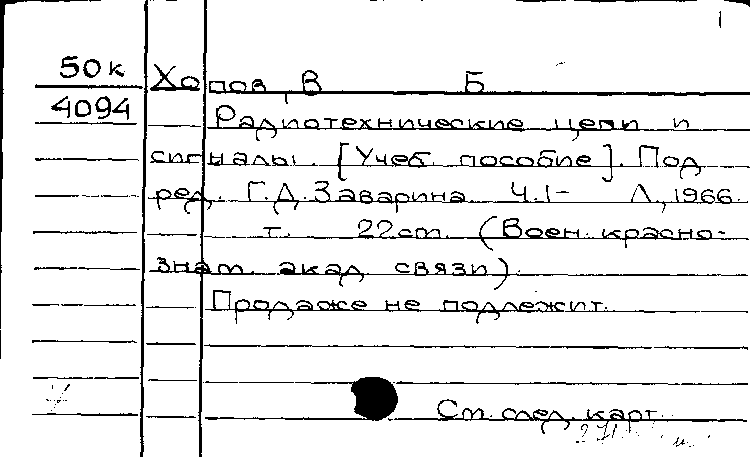 1
50к Хопов, В Б
4094 Радиотехнические цепи и
сигналы. [Учеб. пособие]. Под
ред. Г.Д. Заварина. Ч.1- Л., 1966.
т. 22 см. (Воен. красно-
знам. акад. связи).
Продаже не подлежит.
См. след. карт.